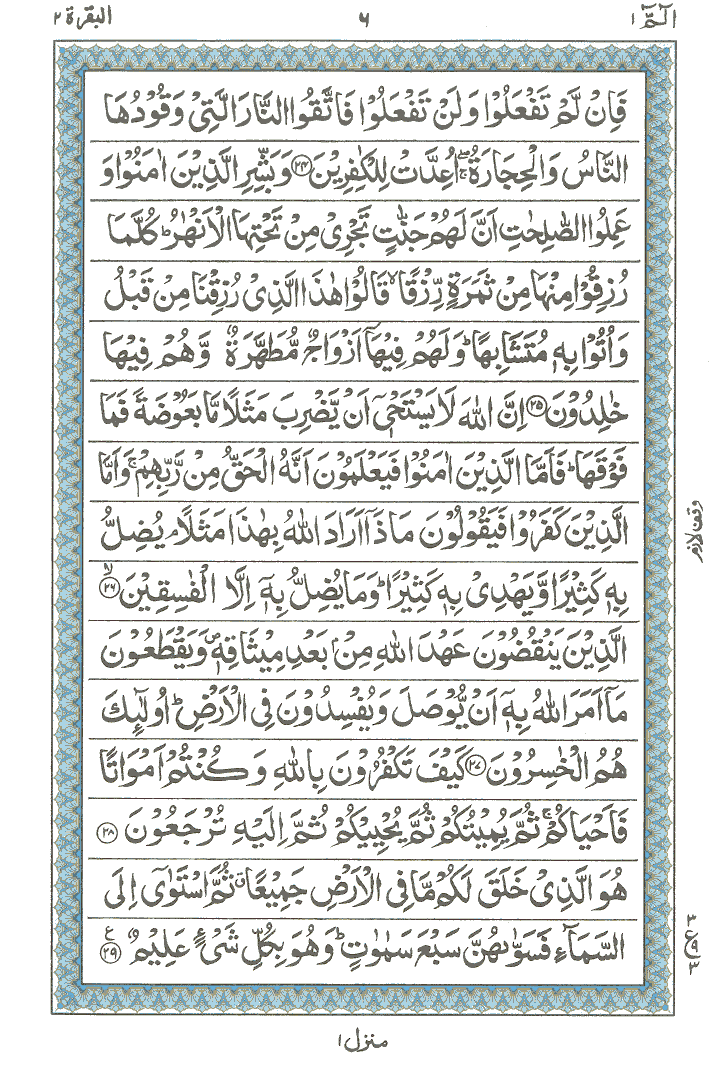 الٓمّٓ ١ ٦ البقرة ٢
فَاِنْ لَّمْ تَفْعَلُوْا وَلَنْ تَفْعَلُوْا فَاتَّقُوا النَّارَ الَّتِیْ وَقُوْدُهَا
النَّاسُ وَالْحِجَارَةُ ۖۚ اُعِدَّتْ لِلْكٰفِرِیْنَ ۝٢٤ وَبَشِّرِ الَّذِیْنَ اٰمَنُوْا وَ
عَمِلُوا الصّٰلِحٰتِ اَنَّ لَهُمْ جَنّٰتٍ تَجْرِیْ مِنْ تَحْتِهَا الْاَنْهٰرُ ؕ كُلَّمَا
رُزِقُوْا مِنْهَا مِنْ ثَمَرَةٍ رِّزْقًا ۙ قَالُوْا هٰذَا الَّذِیْ رُزِقْنَا مِنْ قَبْلُ
وَاُتُوْا بِهٖ مُتَشَابِهًا ؕ وَلَهُمْ فِیْهَاۤ اَزْوَاجٌ مُّطَهَّرَةٌ ۙ وَّهُمْ فِیْهَا
خٰلِدُوْنَ ۝٢٥ اِنَّ اللّٰهَ لَا یَسْتَحْیٖۤ اَنْ یَّضْرِبَ مَثَلًا مَّا بَعُوْضَةً فَمَا
فَوْقَهَا ؕ فَاَمَّا الَّذِیْنَ اٰمَنُوْا فَیَعْلَمُوْنَ اَنَّهُ الْحَقُّ مِنْ رَّبِّهِمْ ۚ وَاَمَّا
الَّذِیْنَ كَفَرُوْا فَیَقُوْلُوْنَ مَاذَاۤ اَرَادَ اللّٰهُ بِهٰذَا مَثَلًا ۘ یُضِلُّ
وقف لازم
بِهٖ كَثِیْرًا وَّیَهْدِیْ بِهٖ كَثِیْرًا ؕ وَمَا یُضِلُّ بِهٖۤ اِلَّا الْفٰسِقِیْنَ ۙ۝٢٦
الَّذِیْنَ یَنْقُضُوْنَ عَهْدَ اللّٰهِ مِنْۢ بَعْدِ مِیْثَاقِهٖ ۪ وَیَقْطَعُوْنَ
مَاۤ اَمَرَ اللّٰهُ بِهٖۤ اَنْ یُّوْصَلَ وَیُفْسِدُوْنَ فِی الْاَرْضِ ؕ اُولٰٓئِكَ
هُمُ الْخٰسِرُوْنَ ۝٢٧ كَیْفَ تَكْفُرُوْنَ بِاللّٰهِ وَكُنْتُمْ اَمْوَاتًا
فَاَحْیَاكُمْ ۚ ثُمَّ یُمِیْتُكُمْ ثُمَّ یُحْیِیْكُمْ ثُمَّ اِلَیْهِ تُرْجَعُوْنَ ۝٢٨
هُوَ الَّذِیْ خَلَقَ لَكُمْ مَّا فِی الْاَرْضِ جَمِیْعًا ۗ ثُمَّ اسْتَوٰۤی اِلَی
السَّمَآءِ فَسَوّٰىهُنَّ سَبْعَ سَمٰوٰتٍ ؕ وَهُوَ بِكُلِّ شَیْءٍ عَلِیْمٌ ۠۝٢٩
٣ ع ٩ ٣
منزل ١